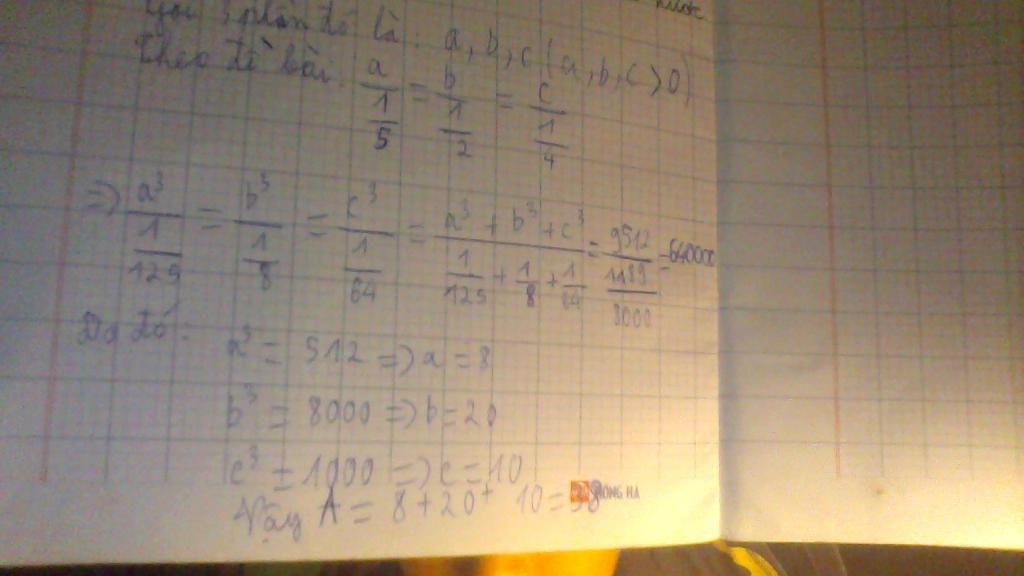 Gọi 3 phần đó là: a, b, c (a, b, c > 0)
Theo đề bài: a/(1/5) = b/(1/2) = c/(1/4)
=> a³/(1/125) = b³/(1/8) = c³/(1/64) = (a³ + b³ + c³)/(1/125 + 1/8 + 1/64) = 9512/(1189/8000) = 64000
Do đó:
a³ = 512 => a = 8
b³ = 8000 => b = 20
c³ = 1000 => c = 10
Vậy A = 8 + 20 + 10 = 38
HỒNG HÀ